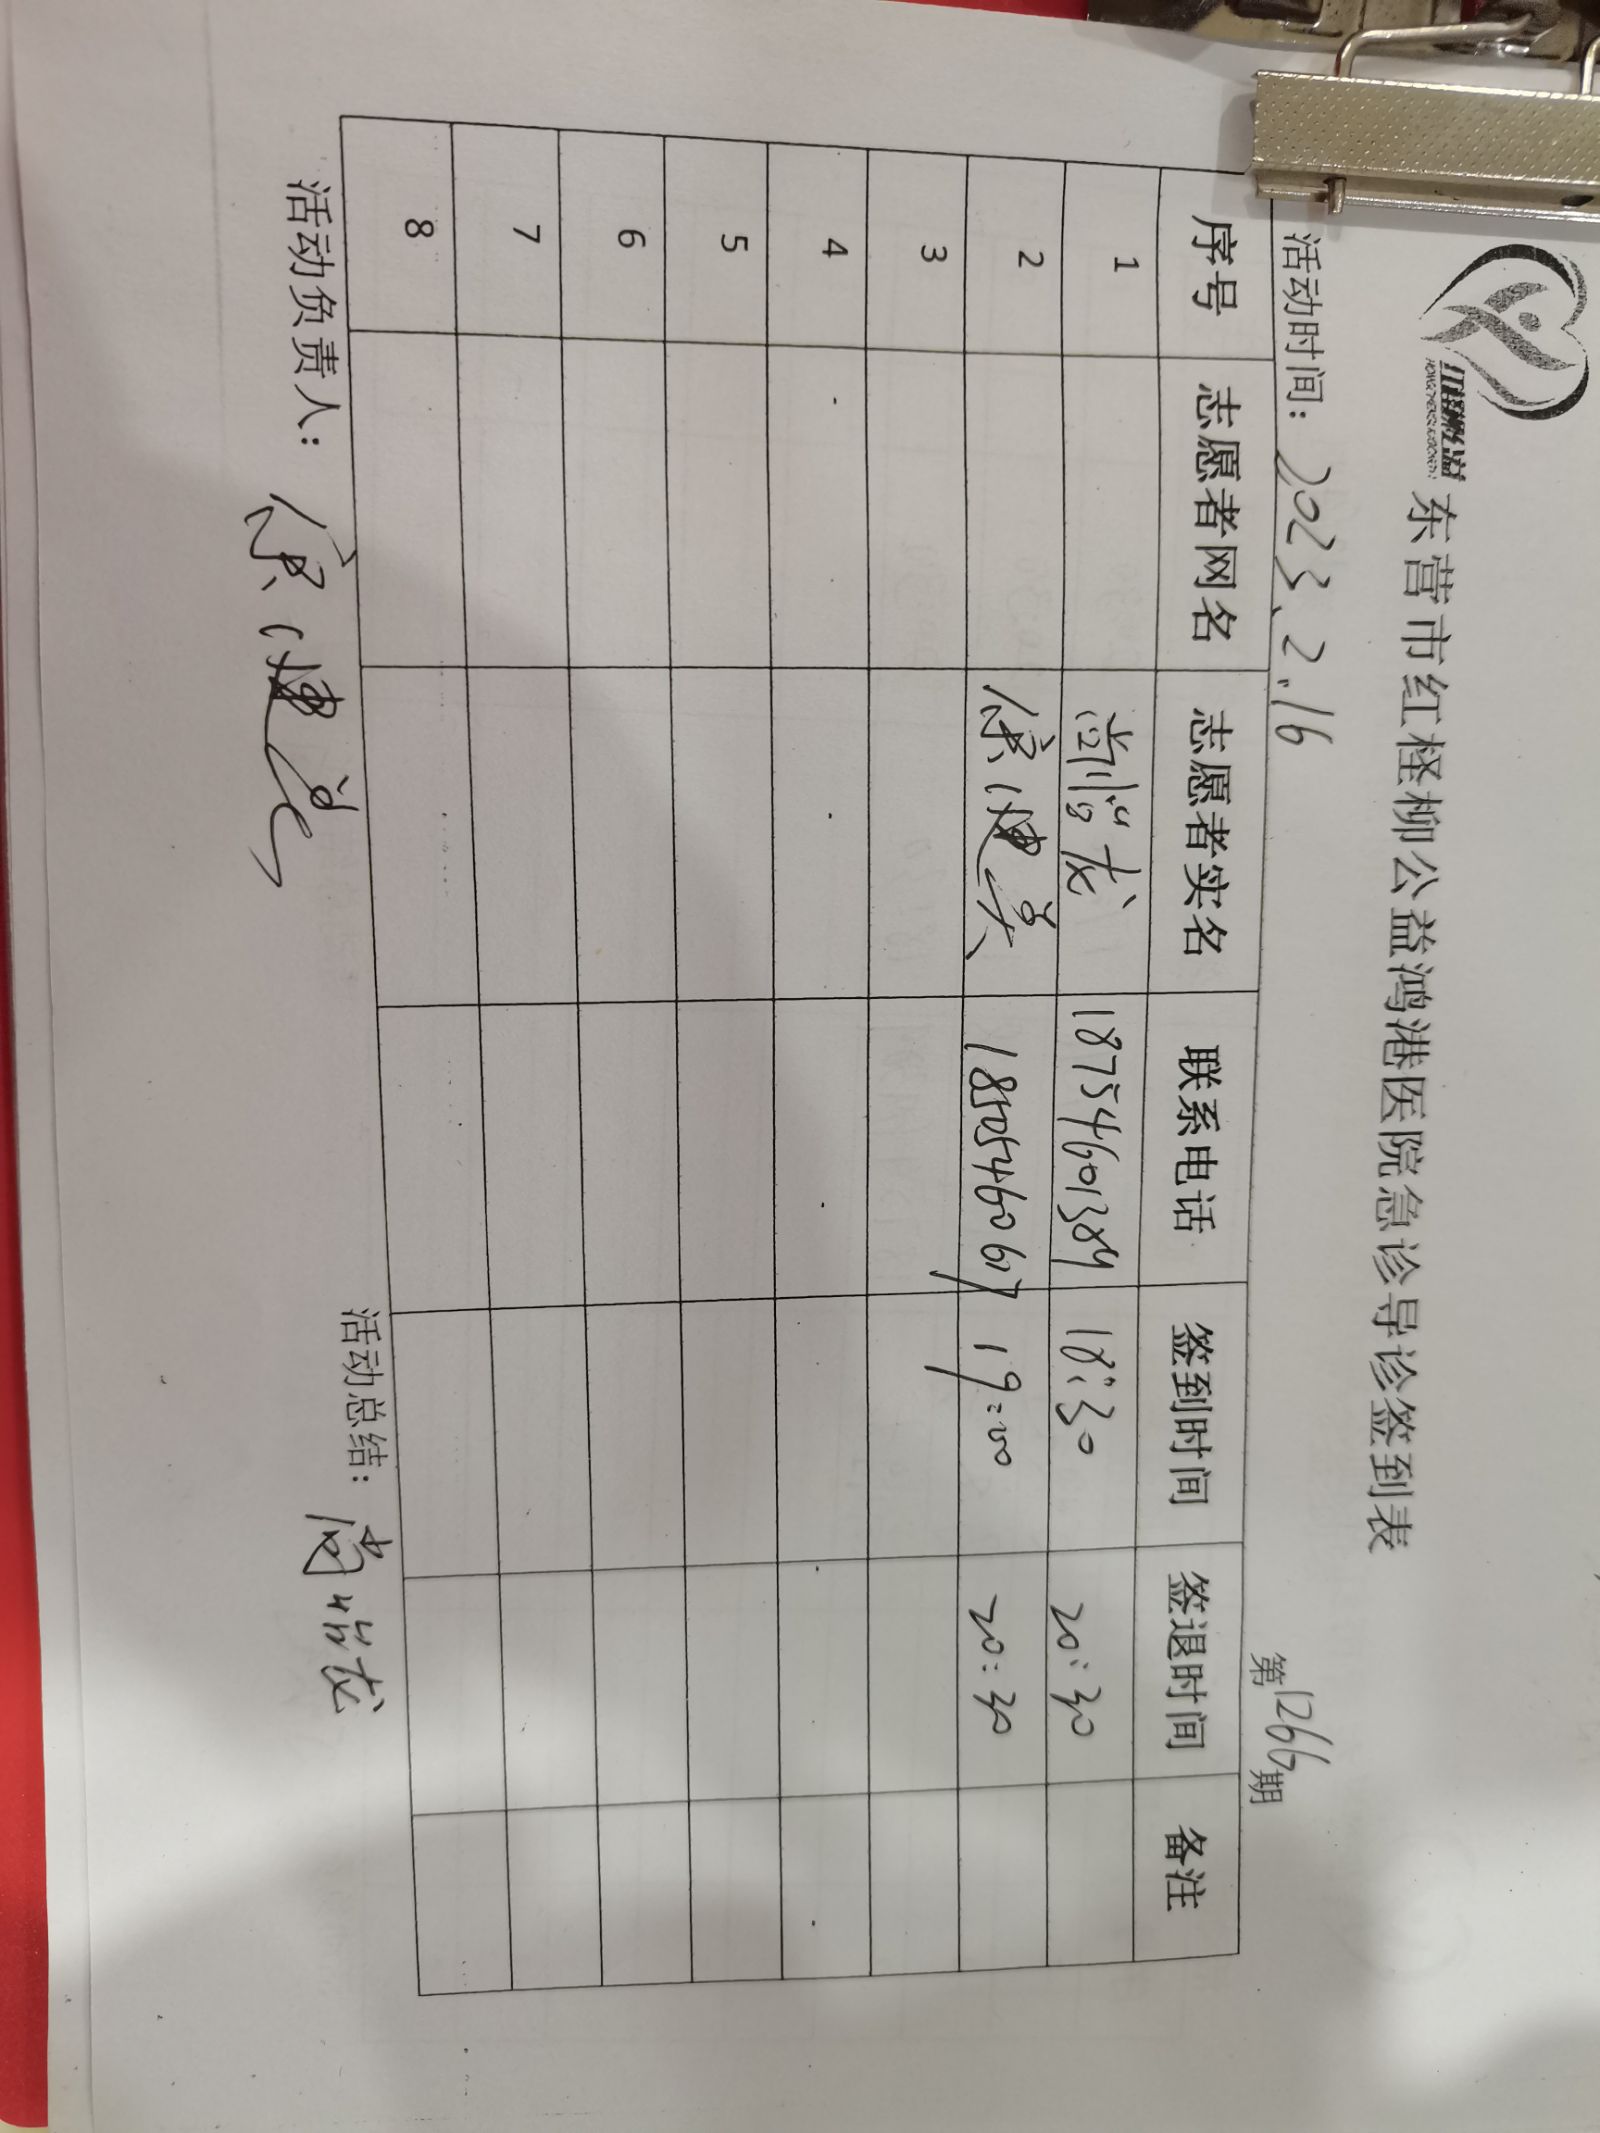 东营市红柽柳公益鸿港医院急诊导诊签到表
活动时间：2023.2.16 第1266期
序号 志愿者网名 志愿者实名 联系电话 签到时间 签退时间 备注
1 18754601389 18:30 20:30
2 徐健美 18505460607 19:00 20:30
3
4
5
6
7
8
活动负责人：徐健美 活动总结：